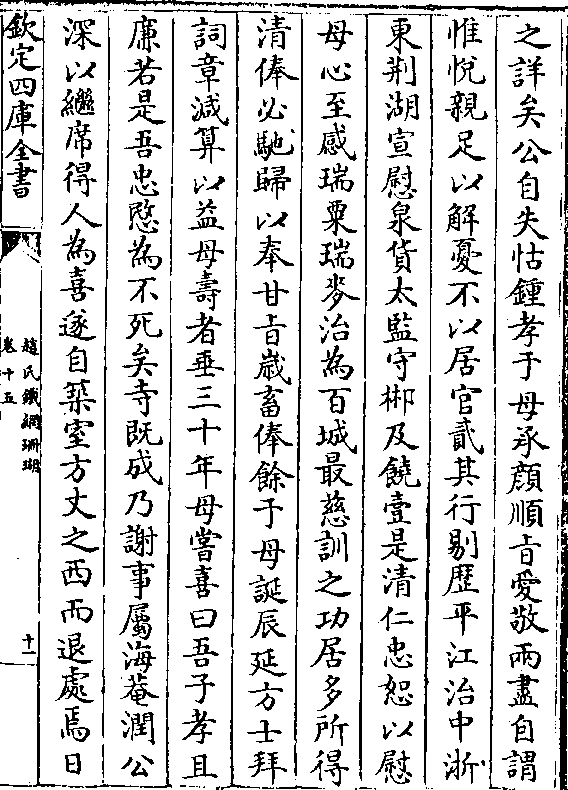 之詳矣公自失怙鍾孝于母承顔順㫖愛敬兩盡自謂
惟悅親足以解憂不以居官貳其行剔歴平江治中浙
東荆湖宣慰泉貨太監守郴及饒壹是清仁忠恕以慰
母心至感瑞粟瑞麥治為百城最慈訓之功居多所得
清俸必馳歸以奉甘㫖歳畜俸餘于母誕辰延方士拜
詞章減算以益母壽者垂三十年母嘗喜曰吾子孝且
亷若是吾忠愍為不死矣寺既成乃謝事屬海菴潤公
深以繼席得人為喜遂自築室方丈之西而退處焉日
欽定四庫全書
趙氏鐵網珊瑚
卷十五
十一